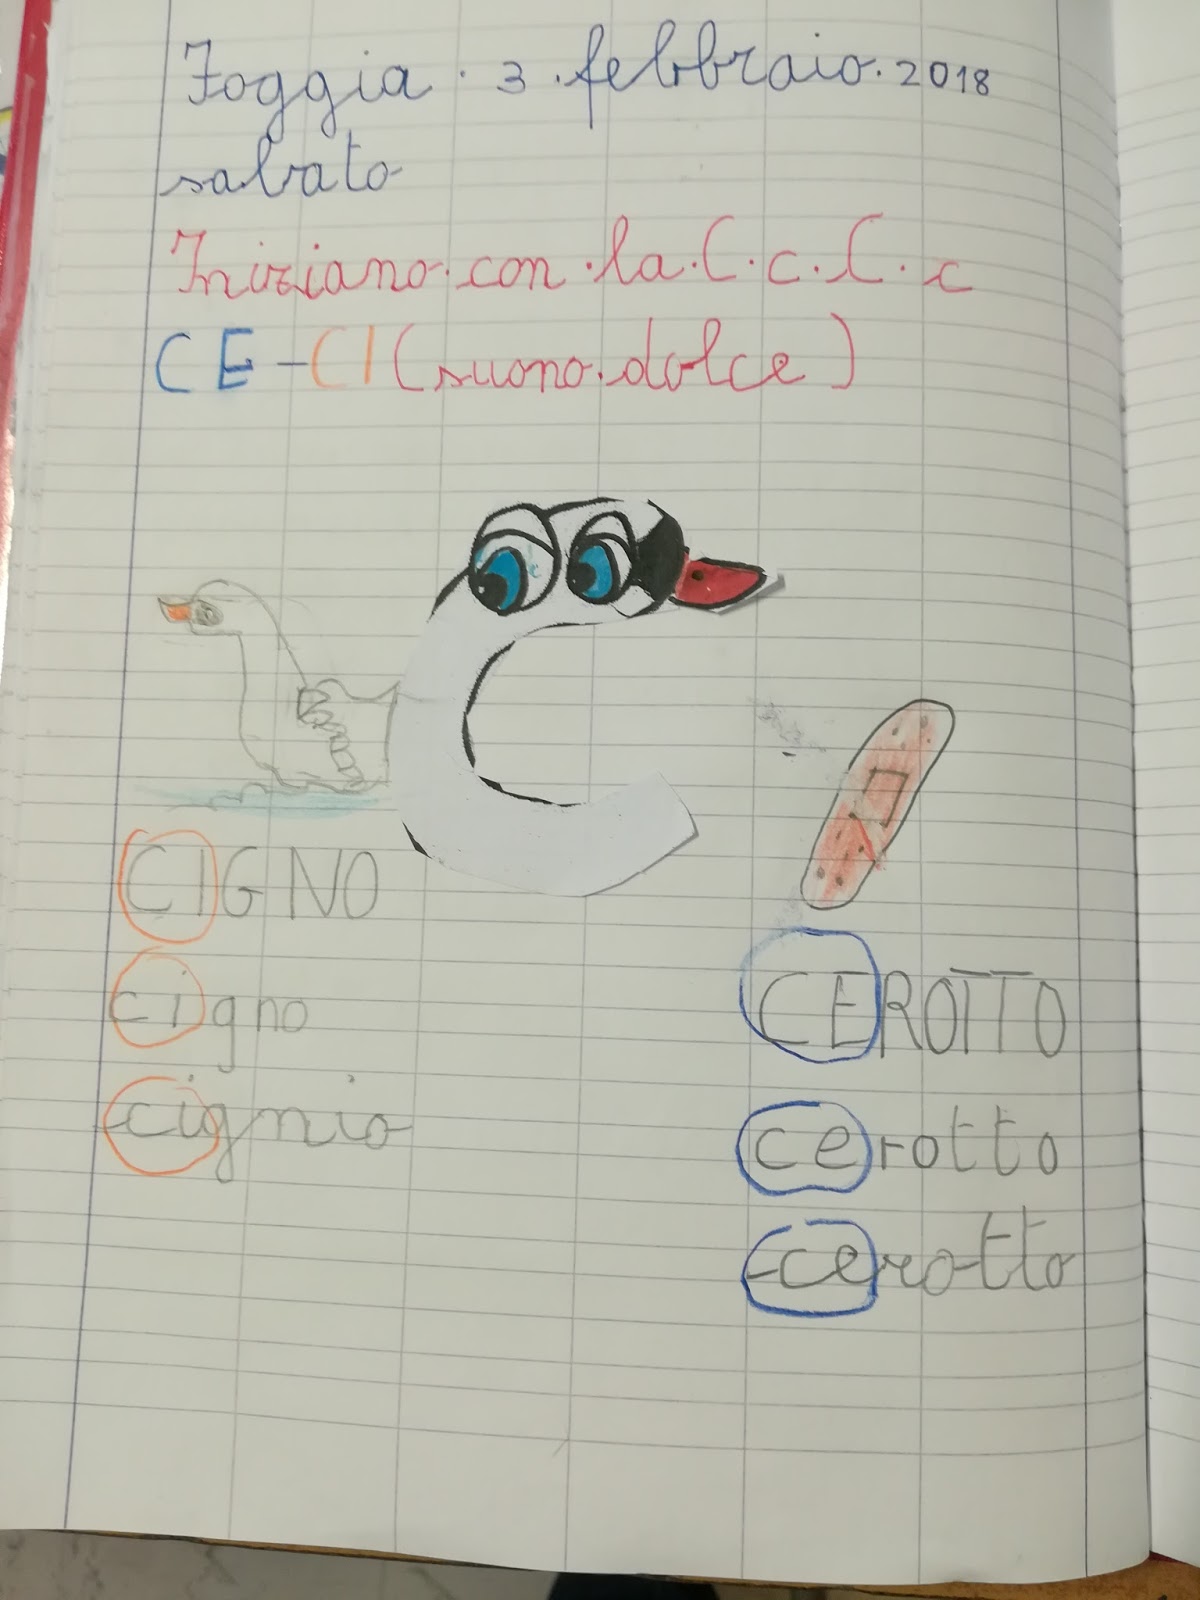 Foggia · 3 · febbraio · 2018
sabato
Iniziano · con · la · C · c · C · c
CE - CI (suono · dolce)
CIGNO
cigno
cignio
CEROTTO
cerotto
cerotto